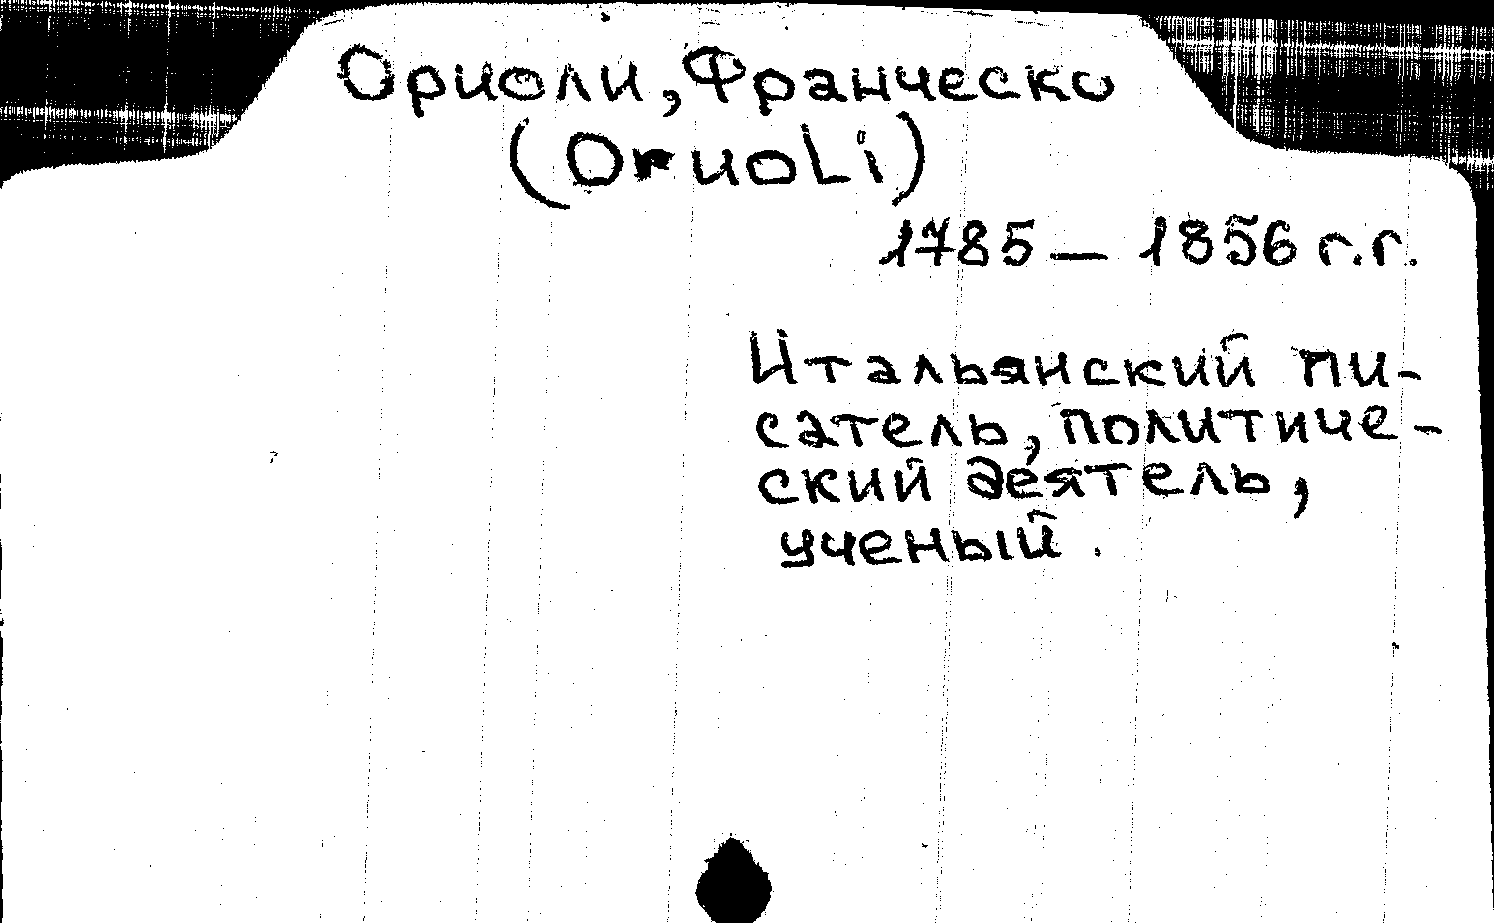 Ориоли, Франческо
(OruoLi)
1785 – 1856 г.г.
Итальянский пи-
сатель, политиче-
ский деятель,
ученый.